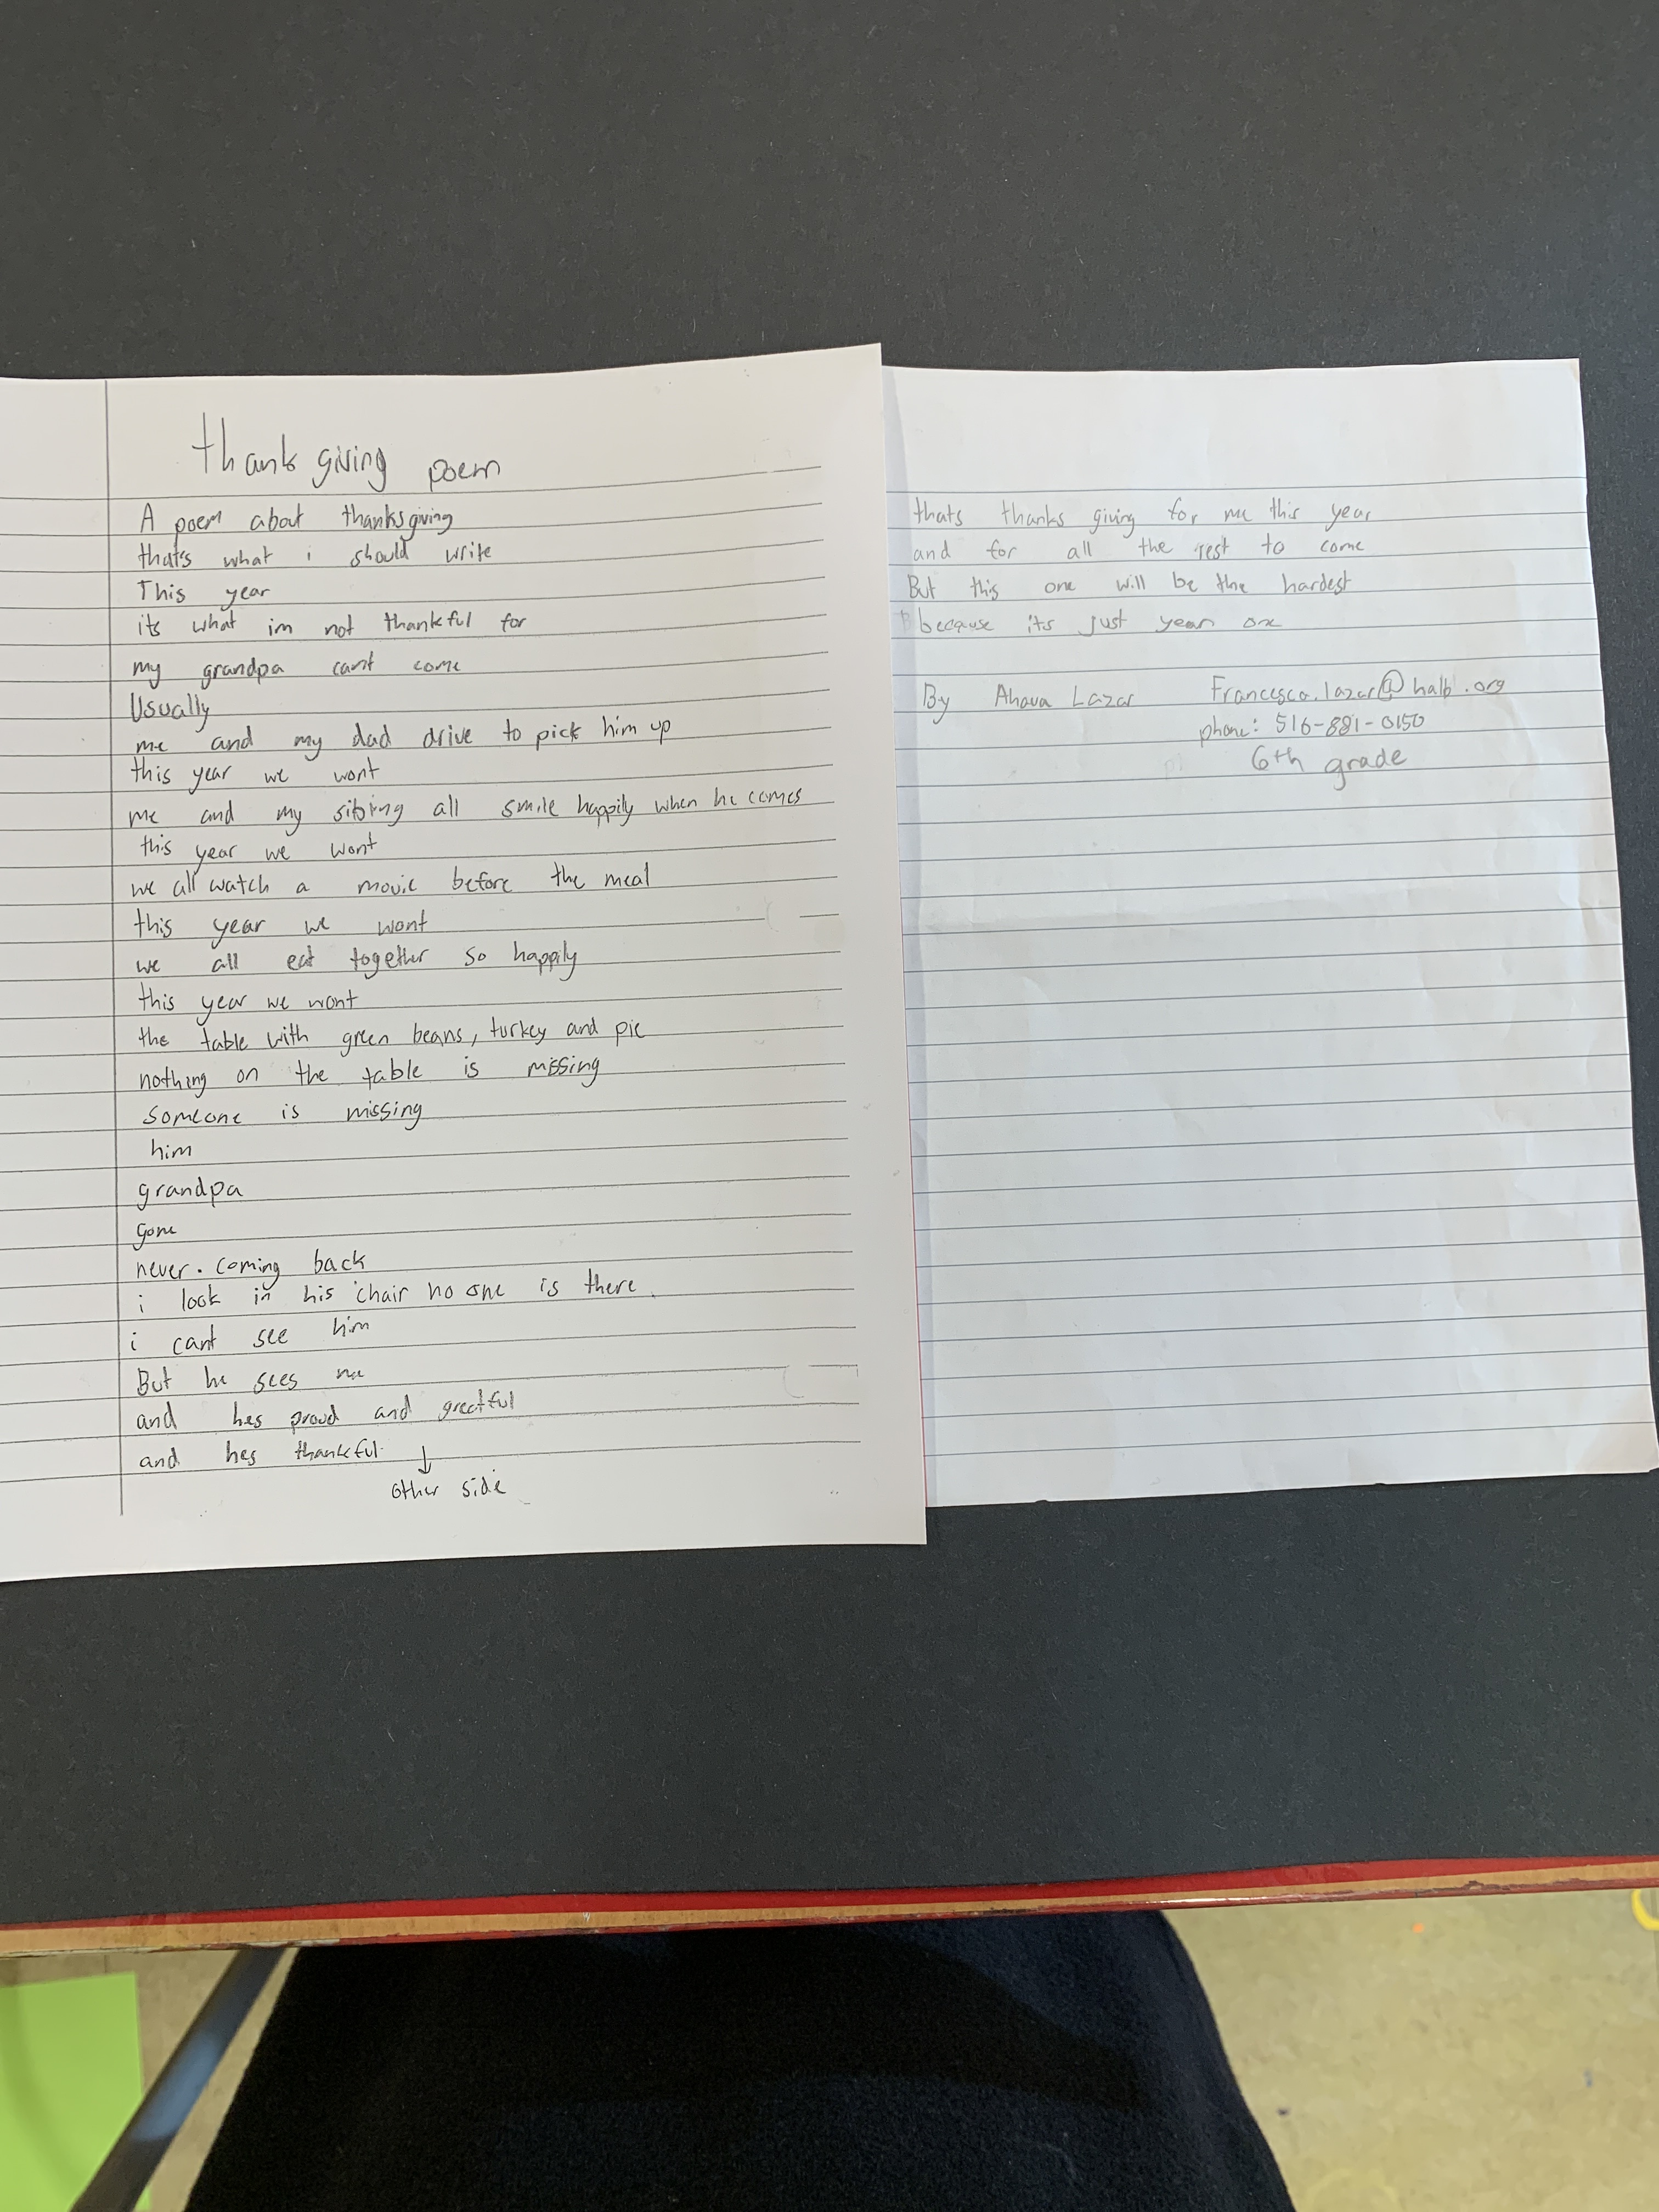 thanksgiving poem
A poem about thanksgiving
thats what i should write
This year
its what im not thankful for
my grandpa cant come
Usually
me and my dad drive to pick him up
this year we wont
me and my sibling all smile happily when he comes
this year we wont
we all watch a movie before the meal
this year we wont
we all eat together so happily
this year we wont
the table with green beans, turkey and pie
nothing on the table is missing
someone is missing
him
grandpa
gone
never. coming back
i look in his chair no one is there
i cant see him
But he sees me
and hes proud and greatful
and hes thankful
↓
other side
thats thanks giving for me this year
and for all the rest to come
But this one will be the hardest
because its just year one
By Ahava Lazar Francesca.lazar@halb.org
phone: 516-881-0150
6th grade